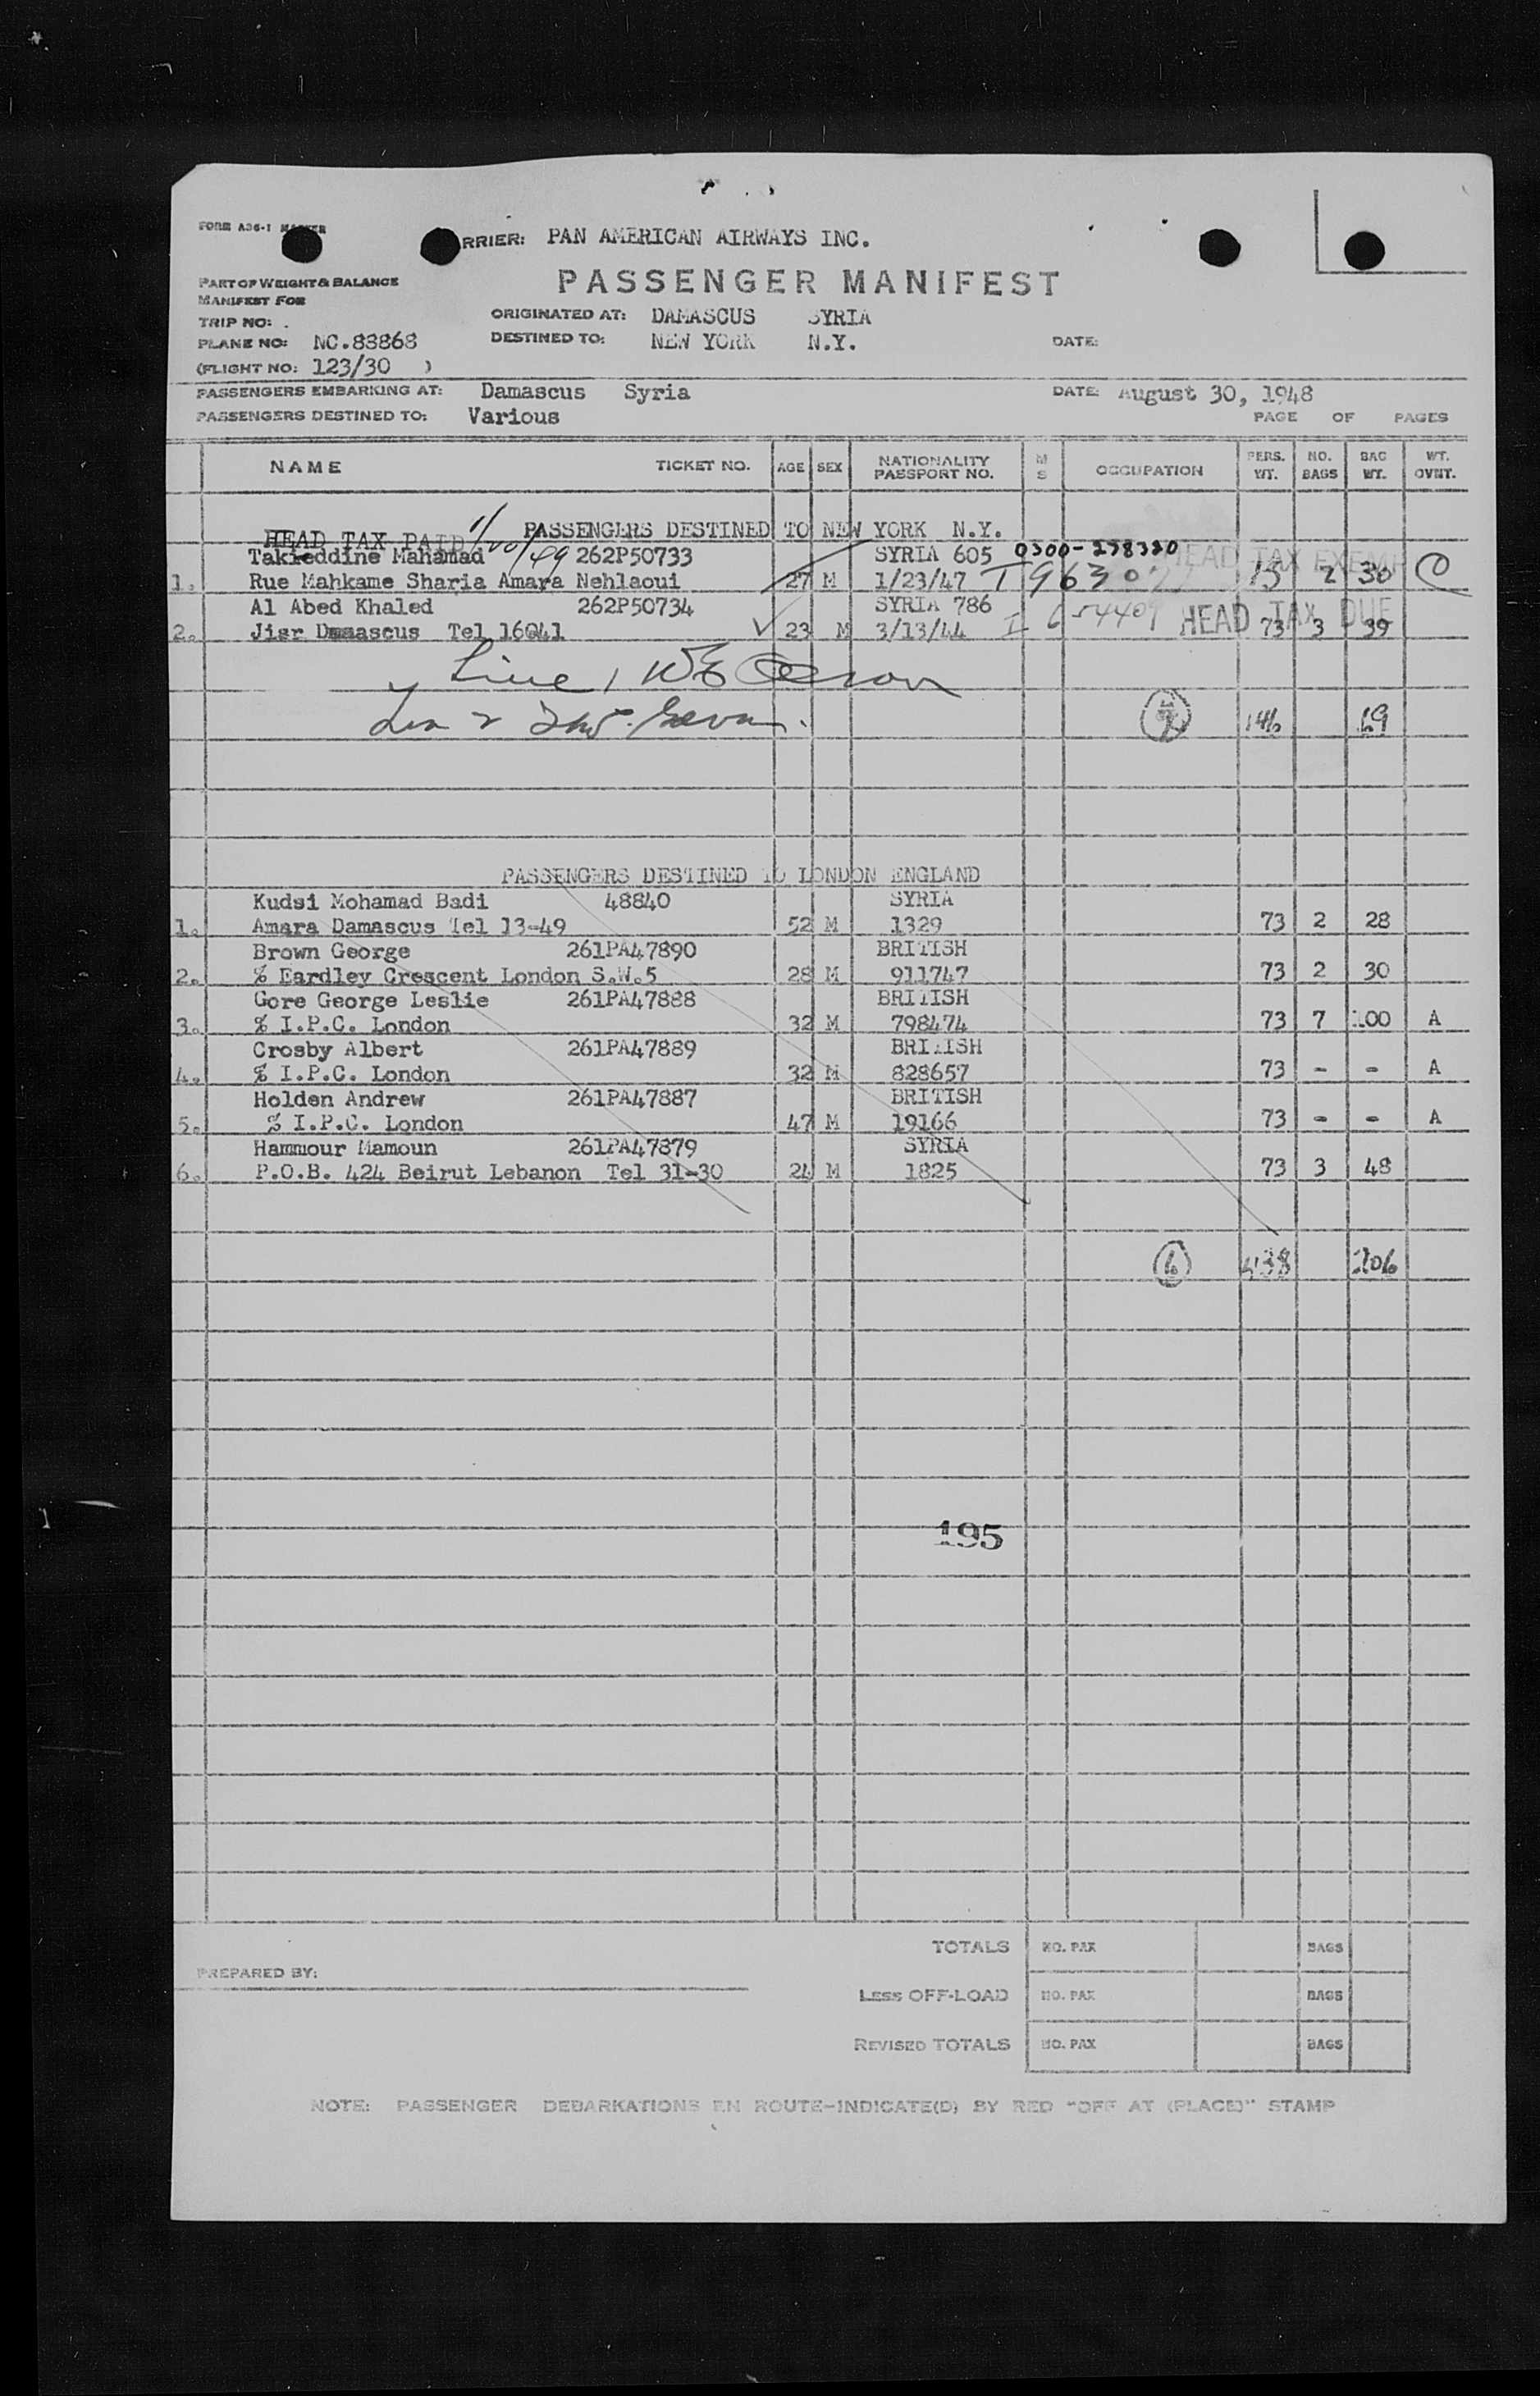 FORM A36-1
RRIER: PAN AMERICAN AIRWAYS INC.
PASSENGER MANIFEST
PART OF WEIGHT & BALANCE
MANIFEST FOR
TRIP NO:
ORIGINATED AT: DAMASCUS SYRIA
PLANE NO: NC.88868
DESTINED TO: NEW YORK N.Y.
DATE:
(FLIGHT NO: 123/30 )
PASSENGERS EMBARKING AT: Damascus Syria
DATE: August 30, 1948
PASSENGERS DESTINED TO: Various
PAGE OF PAGES
NAME TICKET NO. AGE SEX NATIONALITY PASSPORT NO. M S OCCUPATION PERS. WT. NO. BAGS BAG WT. WT. OVNT.
PASSENGERS DESTINED TO NEW YORK N.Y.
HEAD TAX PAID
Takieddine Mahamad 262P50733 SYRIA 605 0300-278320 HEAD TAX EXEMPT
1. Rue Mahkame Sharia Amara Nehlaoui 27 M 1/23/47 2 30
Al Abed Khaled 262P50734 SYRIA 786
2. Jisr Damascus Tel 16041 23 M 3/13/44 HEAD TAX DUE 73 3 39
146 69
PASSENGERS DESTINED TO LONDON ENGLAND
Kudsi Mohamad Badi 48840 SYRIA
1. Amara Damascus Tel 13-49 52 M 1329 73 2 28
Brown George 261PA47890 BRITISH
2. % Eardley Crescent London S.W.5 28 M 911747 73 2 30
Gore George Leslie 261PA47888 BRITISH
3. % I.P.C. London 32 M 798474 73 7 100 A
Crosby Albert 261PA47889 BRITISH
4. % I.P.C. London 32 M 828657 73 - - A
Holden Andrew 261PA47887 BRITISH
5. % I.P.C. London 47 M 19166 73 - - A
Hammour Mamoun 261PA47879 SYRIA
6. P.O.B. 424 Beirut Lebanon Tel 31-30 24 M 1825 73 3 48
6 438 206
195
TOTALS NO. PAX BAGS
PREPARED BY:
LESS OFF-LOAD NO. PAX BAGS
REVISED TOTALS NO. PAX BAGS
NOTE: PASSENGER DEBARKATIONS EN ROUTE-INDICATE(D) BY RED "OFF AT (PLACE)" STAMP